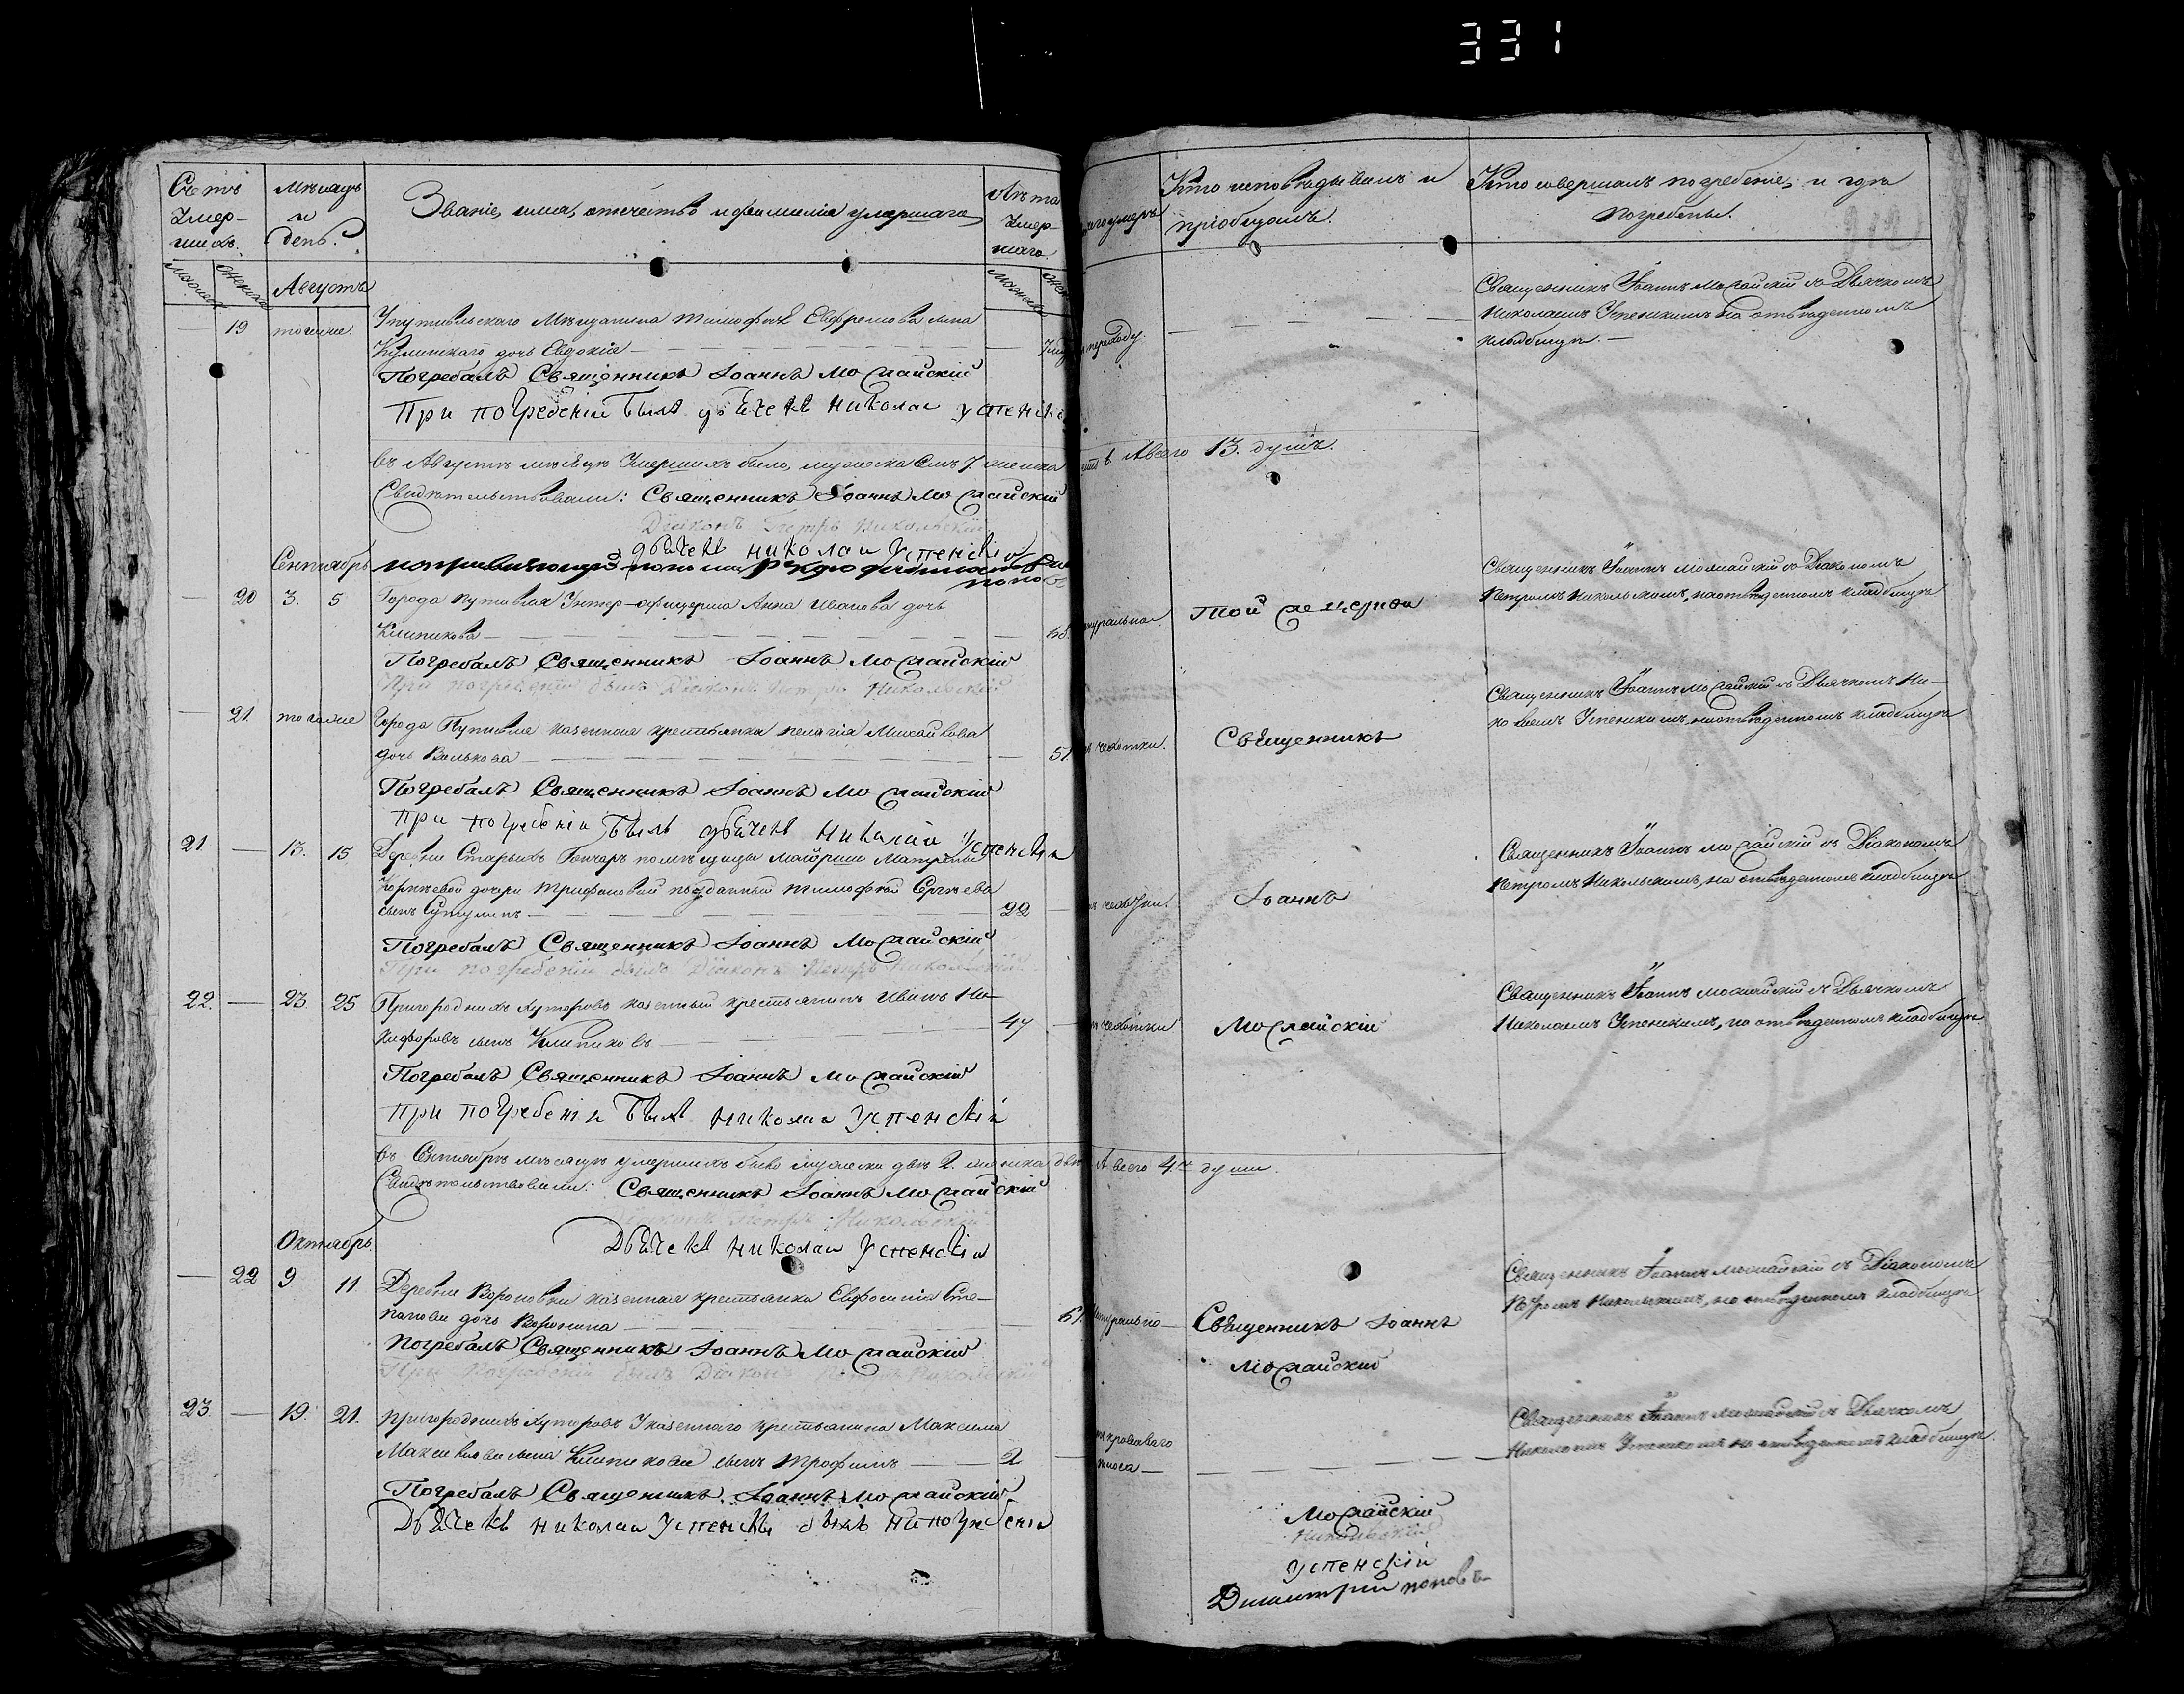 331
Счетъ Умер- шихъ.
Мѣсяцъ и день.
Званіе, имя, отечество и фамилія умершаго
Лѣта Умер- шаго
Кто исповѣдывалъ и пріобщалъ.
Кто совершалъ погребеніе, и гдѣ погребены.
Августъ
19 тогоже. У путивльскаго Мѣщанина Тимофѣя Евфремова сына
дочь Евдокія
Священникъ Іоаннъ Можайскій съ Дьячкомъ
Николаемъ Успенскимъ на отведенномъ
кладбищѣ.
Погребалъ Священникъ Іоаннъ Можайскій
При погребеніи былъ дьячекъ Николай Успенскі
въ Августѣ мѣсяцѣ Умершихъ было, мужеска 7. женска
А всего 13. душъ.
Свидѣтельствовали: Священникъ Іоаннъ Можайскій
Діаконъ Петръ Никольскій
дьячекъ Николай Успенскій
Сентябрь
20 3. 5 Города Путивля Унтер-офицерша Анна Иванова дочь
Клипикова
Той же церкви
Священникъ Іоаннъ Можайскій съ Діакономъ
Петромъ Никольскимъ, на отведенномъ кладбищѣ
Погребалъ Священникъ Іоаннъ Можайскій
При погребеніи былъ Діаконъ Петръ Никольскій
21. тогоже Города Путивля казенная крестьянка Пелагія Михайлова
дочь Волькова 51. чехотки.
Священникъ
Священникъ Іоаннъ Можайскій съ Дьячкомъ Ни-
колаемъ Успенскимъ, на отведенномъ кладбищѣ
Погребалъ Священникъ Іоаннъ Можайскій
При погребеніи былъ дьячекъ Николай Успенскій
21 13. 15 Деревни Старыхъ Гончаръ помѣщицы маіорши Матрены
дочери Трифоновой подданный Тимофѣй Сергѣевъ
сынъ 22
Іоаннъ
Священникъ Іоаннъ Можайскій съ Діакономъ
Петромъ Никольскимъ, на отведенномъ кладбищѣ
Погребалъ Священникъ Іоаннъ Можайскій
При погребеніи былъ Діаконъ Петръ Никольскій
22. 23 25 Пригородныхъ хуторовъ казенный крестьянинъ Иванъ Ни-
кифоровъ сынъ Клипиковъ 47 чехотки
Можайскій
Священникъ Іоаннъ Можайскій съ Дьячкомъ
Николаемъ Успенскимъ, на отведенномъ кладбищѣ
Погребалъ Священникъ Іоаннъ Можайскій
При погребеніи былъ Николай Успенскій
въ Сентябрѣ мѣсяцѣ умершихъ было мужеска двѣ 2. женска двѣ А всего 4. души.
Свидѣтельствовали: Священникъ Іоаннъ Можайскій
Діаконъ Петръ Никольскій
Дьячекъ Николай Успенскій
Октябрь
22 9 11 Деревни Вороновки казенная крестьянка Евфросинія Сте-
панова дочь Воронина
Священникъ Іоаннъ
Можайскій
Священникъ Іоаннъ Можайскій съ Діакономъ
Петромъ Никольскимъ, на отведенномъ кладбищѣ
Погребалъ Священникъ Іоаннъ Можайскій
При погребеніи былъ Діаконъ Петръ Никольскій
23. 19. 21. Пригородныхъ хуторовъ У казеннаго крестьянина Максима
сына Клипикова сынъ Трофимъ 2
кроваваго
поноса
Священникъ Іоаннъ Можайскій съ Дьячкомъ
Николаемъ Успенскимъ на отведенномъ кладбищѣ
Погребалъ Священникъ Іоаннъ Можайскій
Дьячекъ Николай Успенскій былъ при погребеніи
Можайскій
Никольскій
Успенскій
Димитрій Поповъ